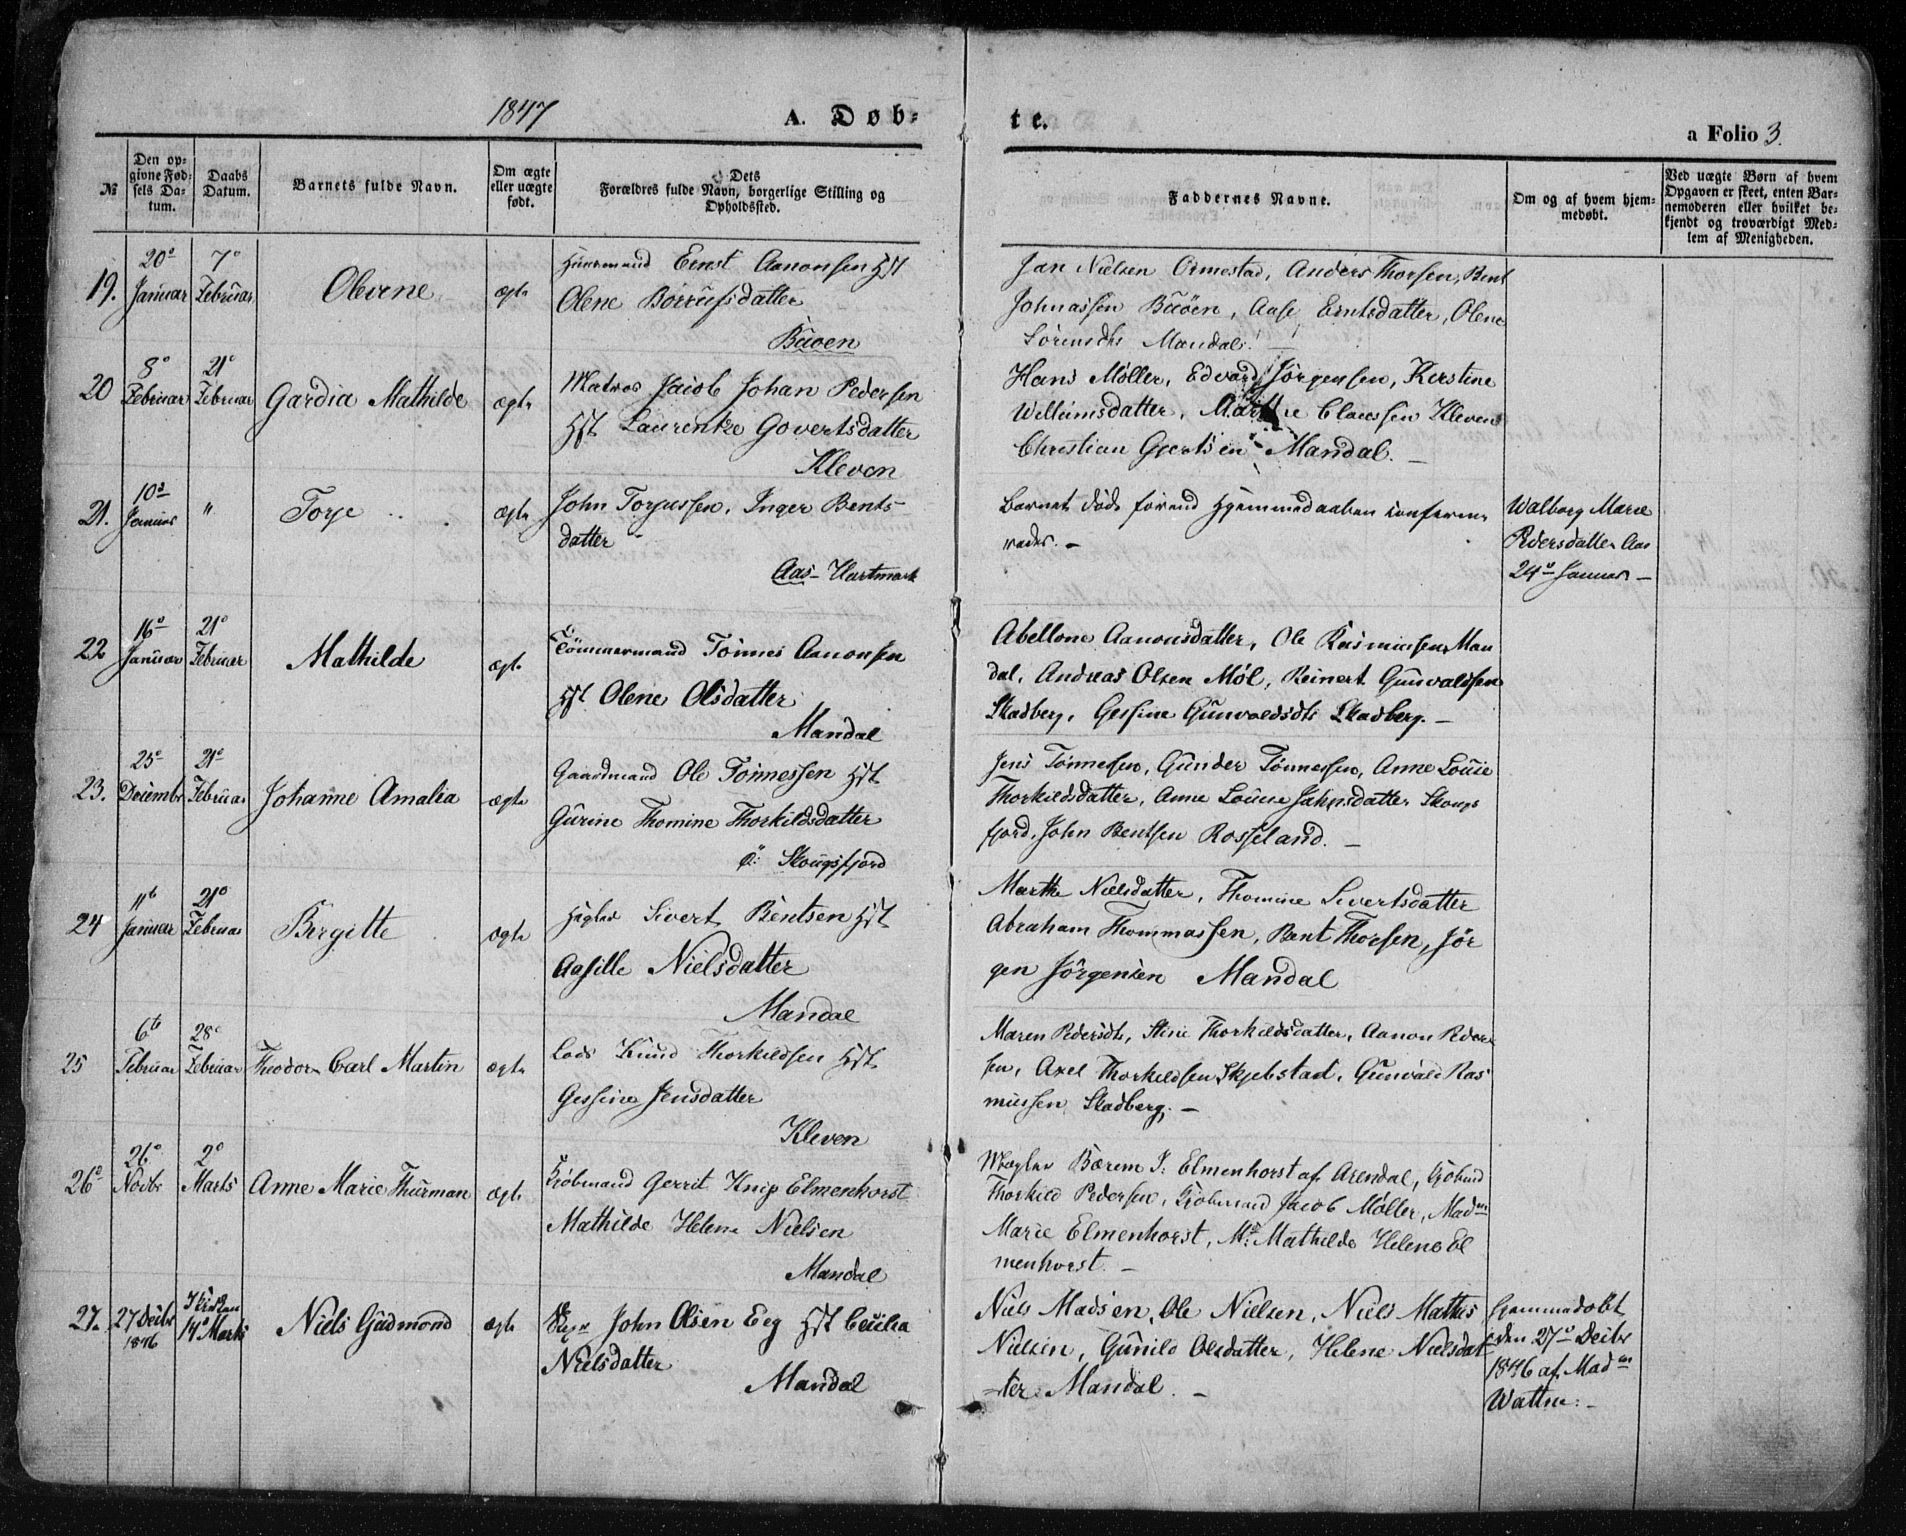 1847
A. Døb-
te.
a Folio 3.
№
Den op-
givne Fød-
sels Da-
tum.
Daabs
Datum.
Barnets fulde Navn.
Om ægte
eller uægte
født.
Dets
Forældres fulde Navn, borgerlige Stilling og
Opholdssted.
Faddernes Navne.
Om og af hvem hjem-
medøbt.
Ved uægte Børn af hvem
Opgaven er skeet, enten Bar-
nemoderen eller hvilket be-
kjendt og troværdigt Med-
lem af Menigheden.
19.
20de
Januar
7de
Februar
Olevine
ægte
Huusmand Ernst Aanonsen Hst
Olene Börrufsdatter
Büöen
Jan Nielsen Ormestad, Anders Thorsen, Bent
Johnassen Büöen, Aase Erntsdatter, Olene
Sörensdtr Mandal.
20
8de
Februar
21de
Februar
Gardia Mathilde
ægte
Matros Jacob Johan Pedersen
Hst Laurentze Govertsdatter
Kleven
Hans Møller, Edvard Jörgensen, Kerstine
Willumsdatter, Marthe Claessen Kleven
Christian Geertsen Mandal. —
21.
10de
Januar
"
Torje
ægte
John Torjussen, Inger Bents-
datter
Aas - Hartmark
Barnet döde forend Hjemmedaaben confirme-
redes. —
Walborg Marie
Pedersdatter Aas
24de Januar —
22
16de
Januar
21de
Februar
Mathilde
ægte
Tömmermand Tönnes Aanonsen
Hst Olene Olsdatter
Mandal
Abellone Aanonsdatter, Ole Rasmussen Man
dal, Andreas Olsen Möl, Reinert Gunvaldsen
Skadberg, Gessine Gunvoldsdtr Skadberg. —
23.
25de
Decembr
21de
Februar
Johanne Amalia
ægte
Gaardmand Ole Tönnessen Hst
Gurine Thomine Thorkildsdatter
ö: Skougsfjord
Jens Tönnesen, Gunder Tönnessen, Anne Louise
Thorkildsdatter, Anne Louise Jahnsdatter Skougs
fjord, John Bentsen Rosseland. —
24
11te
Januar
21de
Februar
Birgitte
ægte
Sivert Bentsen Hst
Aasille Nielsdatter
Mandal
Marthe Nielsdatter, Thomine Sivertsdatter
Abraham Thommassen, Bent Thorsen, Jör
gen Jörgensen Mandal
25
6te
Februar
28de
Februar
Theodor Carl Martin
ægte
Lods Knud Thorkildsen Hst
Gessine Jensdatter
Kleven
Maren Pedersdtr, Stine Thorkildsdatter, Aanon Peder-
sen, Axel Thorkildsen Skjebstad, Gunvald Ras
mussen Skadberg. —
26de
26de
Novbr
2de
Marts
Anne Marie Thurman
ægte
Kjöbmand Gerrit Knip Elmenhorst
Mathilde Helene Nielsen
Mandal
Mægler Börem J: Elmenhorst af Arendal, Kjöbmd
Thorkild Pedersen, Kjöbmand Jacob Møller, Madm
Marie Elmenhorst, Md: Mathilde Helene El
menhorst. —
27.
27 Decbr
1846
I Kirken
14de Marts
Niels Gudmond
ægte
John Olsen Eeg Hst Cecilia
Nielsdatter
Mandal
Niels Madsen, Ole Nielsen, Niels Mathis
Nielsen, Gunild Olsdatter, Helene Nielsdat
ter Mandal. —
Hjemmedöbt
den 27de Decbr
1846 af Madm
Wattne. —